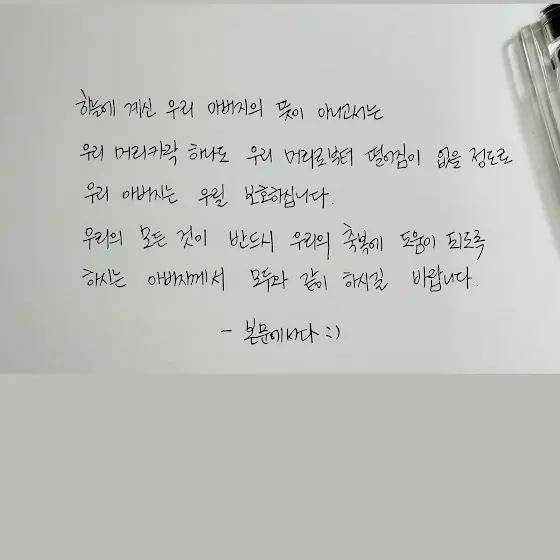 하늘에 계신 우리 아버지의 뜻이 아니고서는
우리 머리카락 하나도 우리 머리로부터 떨어짐이 없을 정도로
우리 아버지는 우릴 보호하십니다.
우리의 모든 것이 반드시 우리의 축복에 도움이 되도록
하시는 아버지께서 모두와 같이 하시길 바랍니다.
- 본문에서다 :)